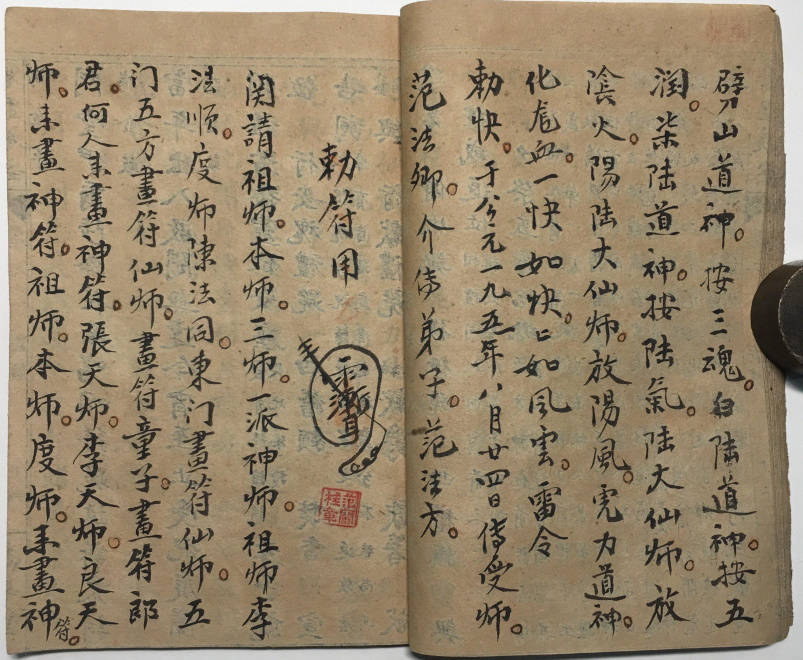 劈山道神。按三魂。白陆道神。按五
润。柒陆道神。按陆氣。陆大仙师。放
陰火陽陆大仙师。放陽風。虎力道神。
化虎血。一快如快〻如風雲。雷令
勅快于公元一九五一年八月廿四日傳受师。
范法卿介傳弟子。范法方。
勅符用
関請祖师。本师。三师。一派神师。祖师李
法順。度师陳法同。東门畫符仙师。五
门五方畫符仙师。畫符童子。畫符郎
君。何人来畫神符。張天师。李天师。良天
师。来畫神符。祖师。本师。度师。来畫神
符。